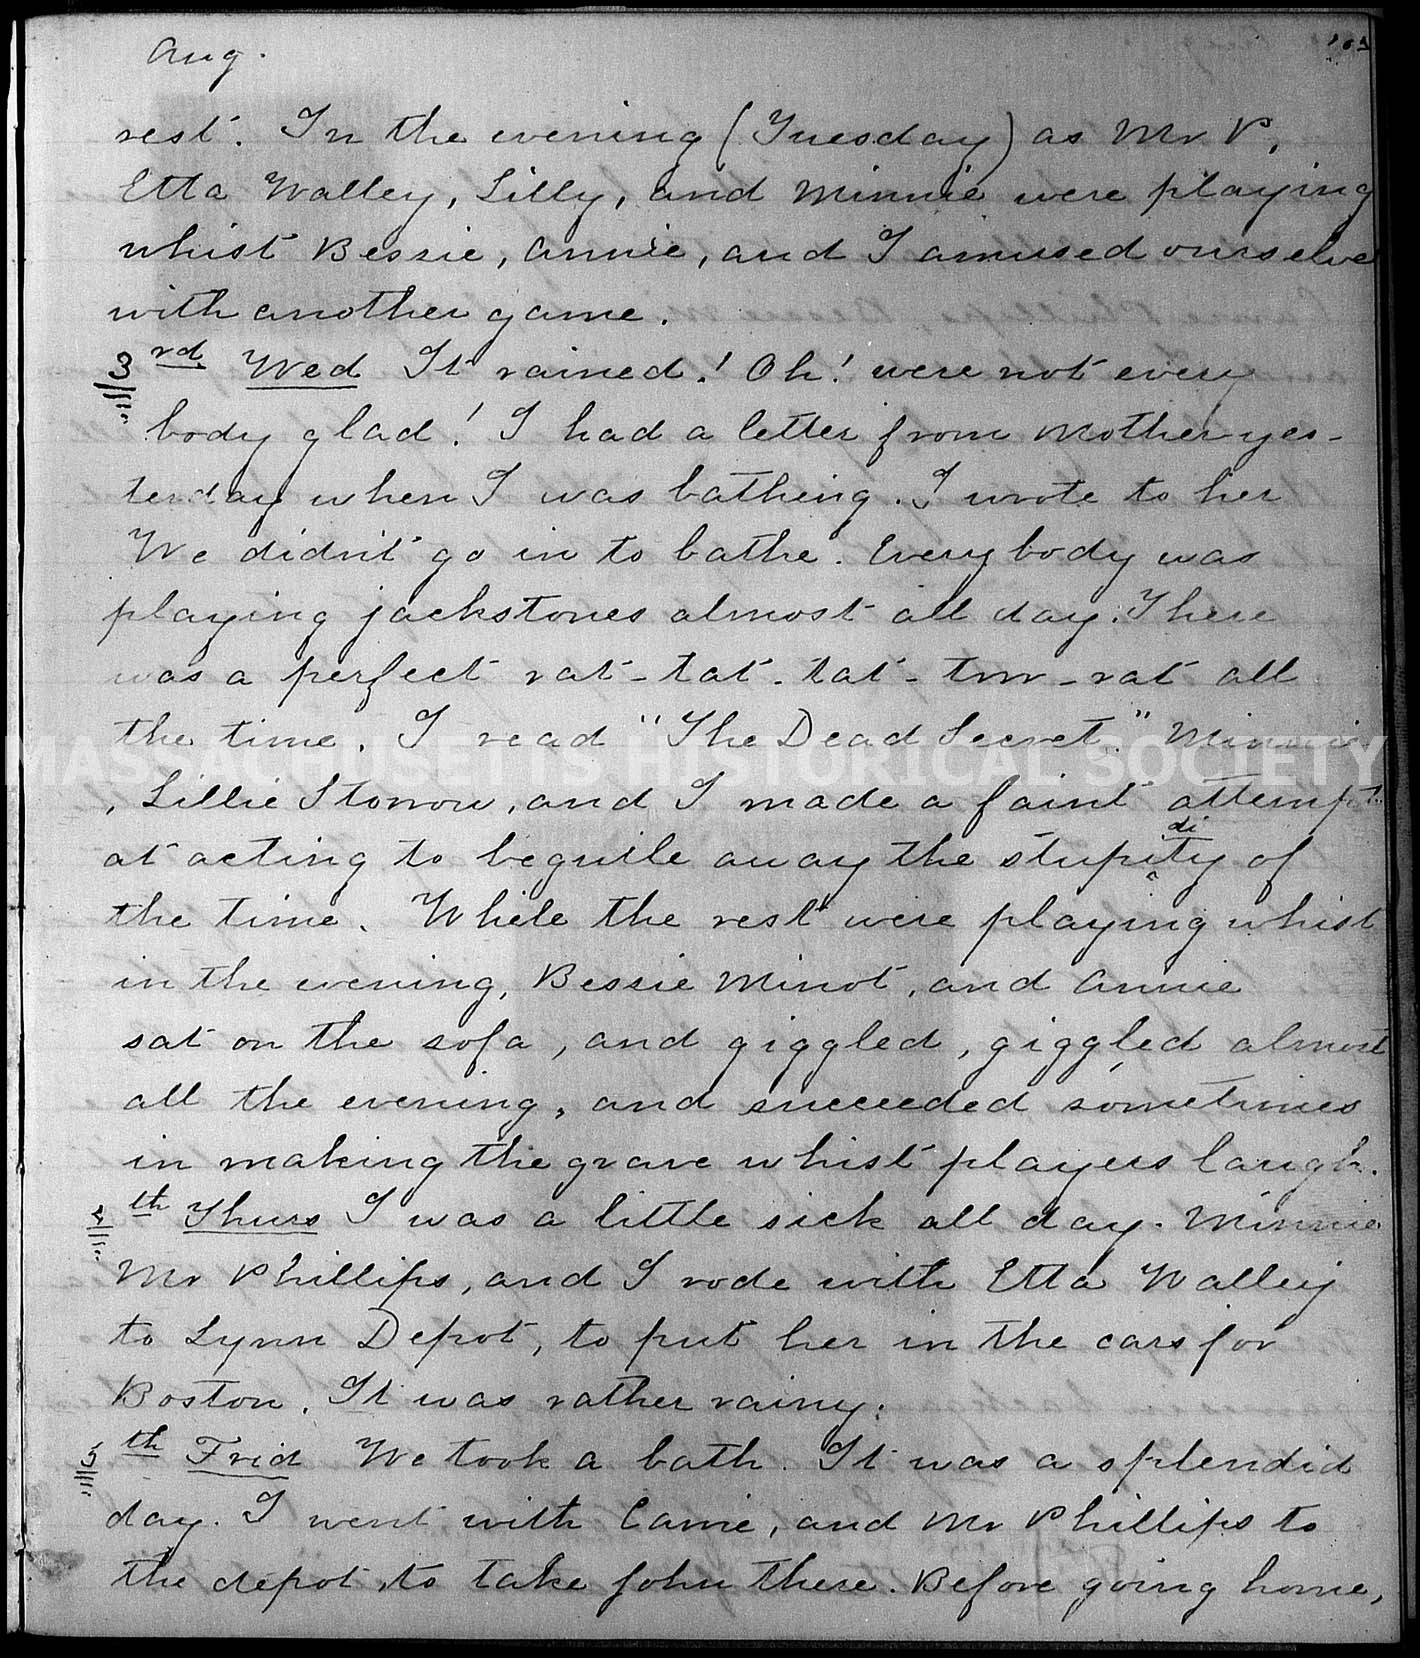 Aug.
rest. In the evening (Tuesday) as Mr P,
Etta Walley, Lilly, and Minnie were playing
whist Bessie, Annie, and I amused ourselves
with another game.
3rd Wed It rained! Oh! were not every
body glad! I had a letter from Mother yes-
terday when I was bathing. I wrote to her
We didn't go in to bathe. Everybody was
playing jackstones almost all day. There
was a perfect rat-tat-tat-too-rat all
the time. I read "The Dead Secret." Minnie
MASSACHUSETTS HISTORICAL SOCIETY
, Lillie Storrow, and I made a faint attempt
di
at acting to beguile away the stupity of
the time. While the rest were playing whist
in the evening, Bessie Minot, and Annie
sat on the sofa, and giggled, giggled almost
all the evening, and succeeded sometimes
in making the grave whist players laugh.
4th Thurs I was a little sick all day. Minnie
Mr Phillips, and I rode with Etta Walley
to Lynn Depot, to put her in the cars for
Boston. It was rather rainy.
5th Frid We took a bath. It was a splendid
day. I went with Carrie, and Mr Phillips to
the depot to take John there. Before going home,